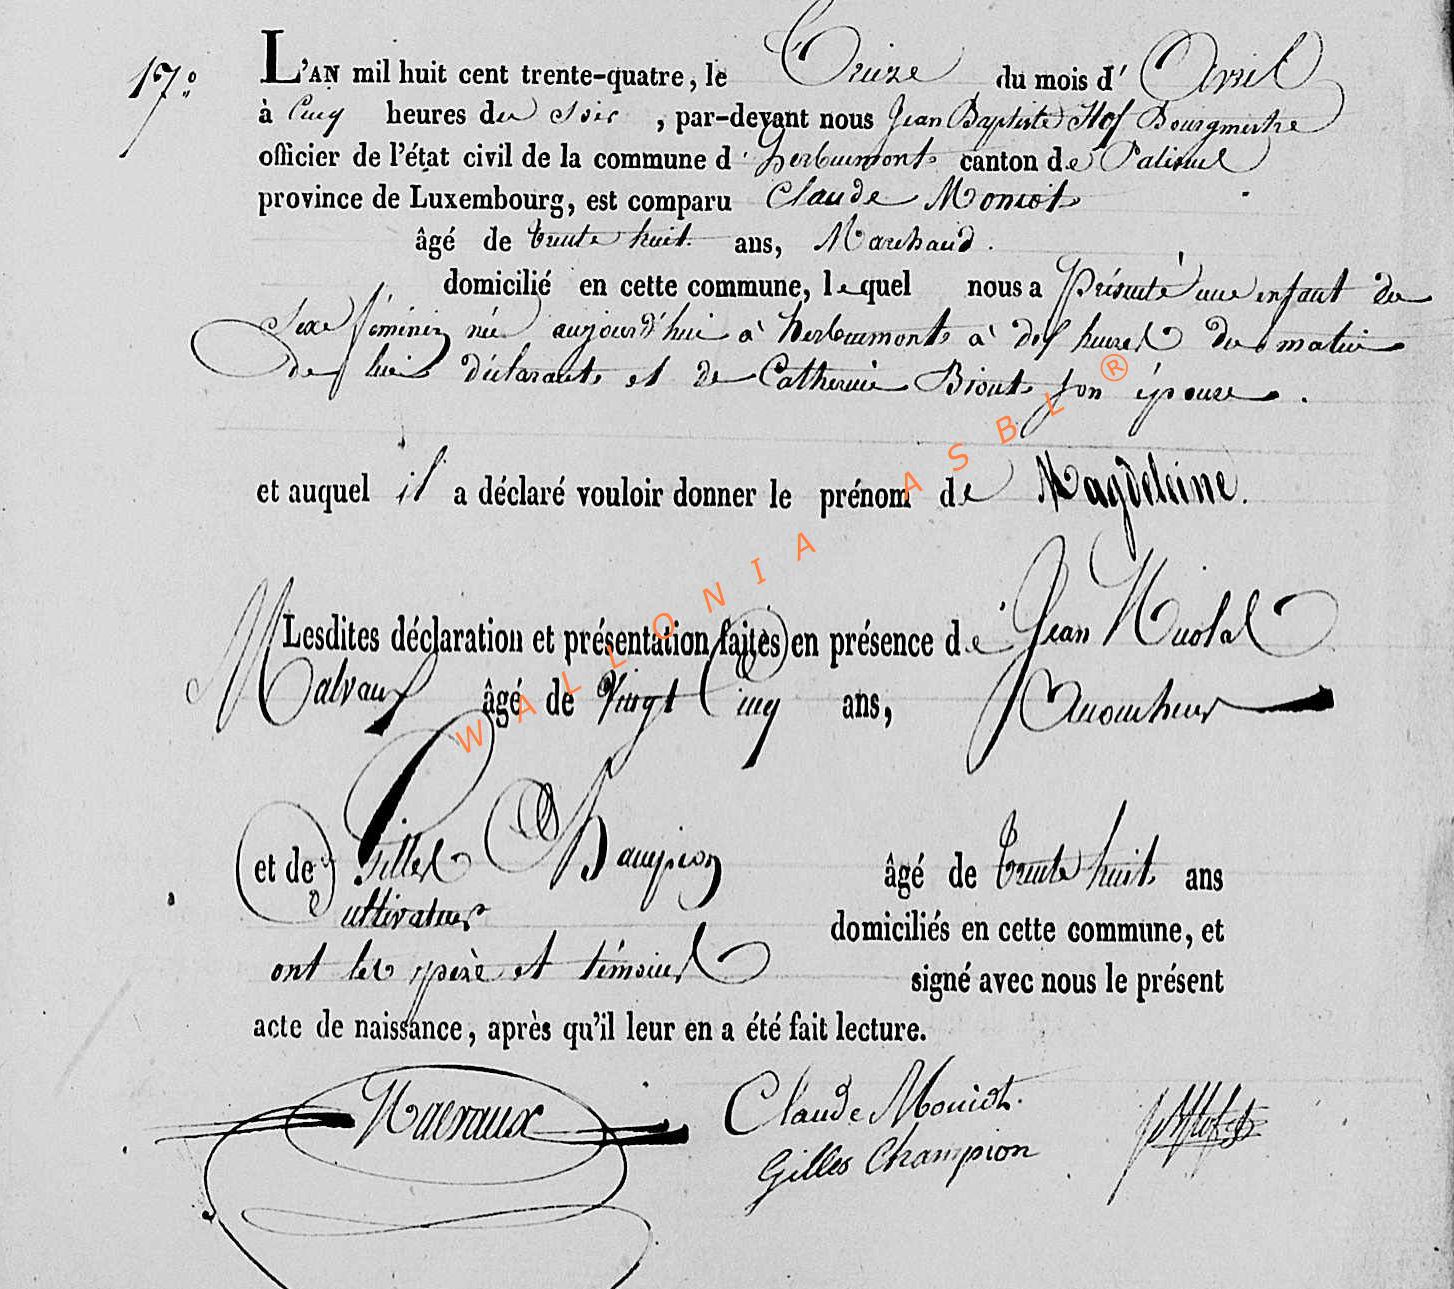 17°
L'AN mil huit cent trente-quatre, le Treize du mois d'Avril
à Cinq heures du soir, par-devant nous Jean Baptiste Hof Bourgmestre
officier de l'état civil de la commune d'herbeumont canton de Paliseul
province de Luxembourg, est comparu Claude Moniot
âgé de trente huit ans, Marchand.
domicilié en cette commune, lequel nous a présenté une enfant du
sexe féminin née aujourd'hui à herbeumont à dix heures du matin
de lui déclarant et de Catherine Biont son épouse.
et auquel il a déclaré vouloir donner le prénom de Magdeleine.
Lesdites déclaration et présentation faites en présence de Jean Nicolas
Malvaux âgé de Vingt Cinq ans, Accoucheur
et de Gilles Champion âgé de trente huit ans
Cultivateur domiciliés en cette commune, et
ont les père et témoins signé avec nous le présent
acte de naissance, après qu'il leur en a été fait lecture.
Malvaux Claude Moniot. JB Hof
Gilles Champion
WALLONIA ASBL ®